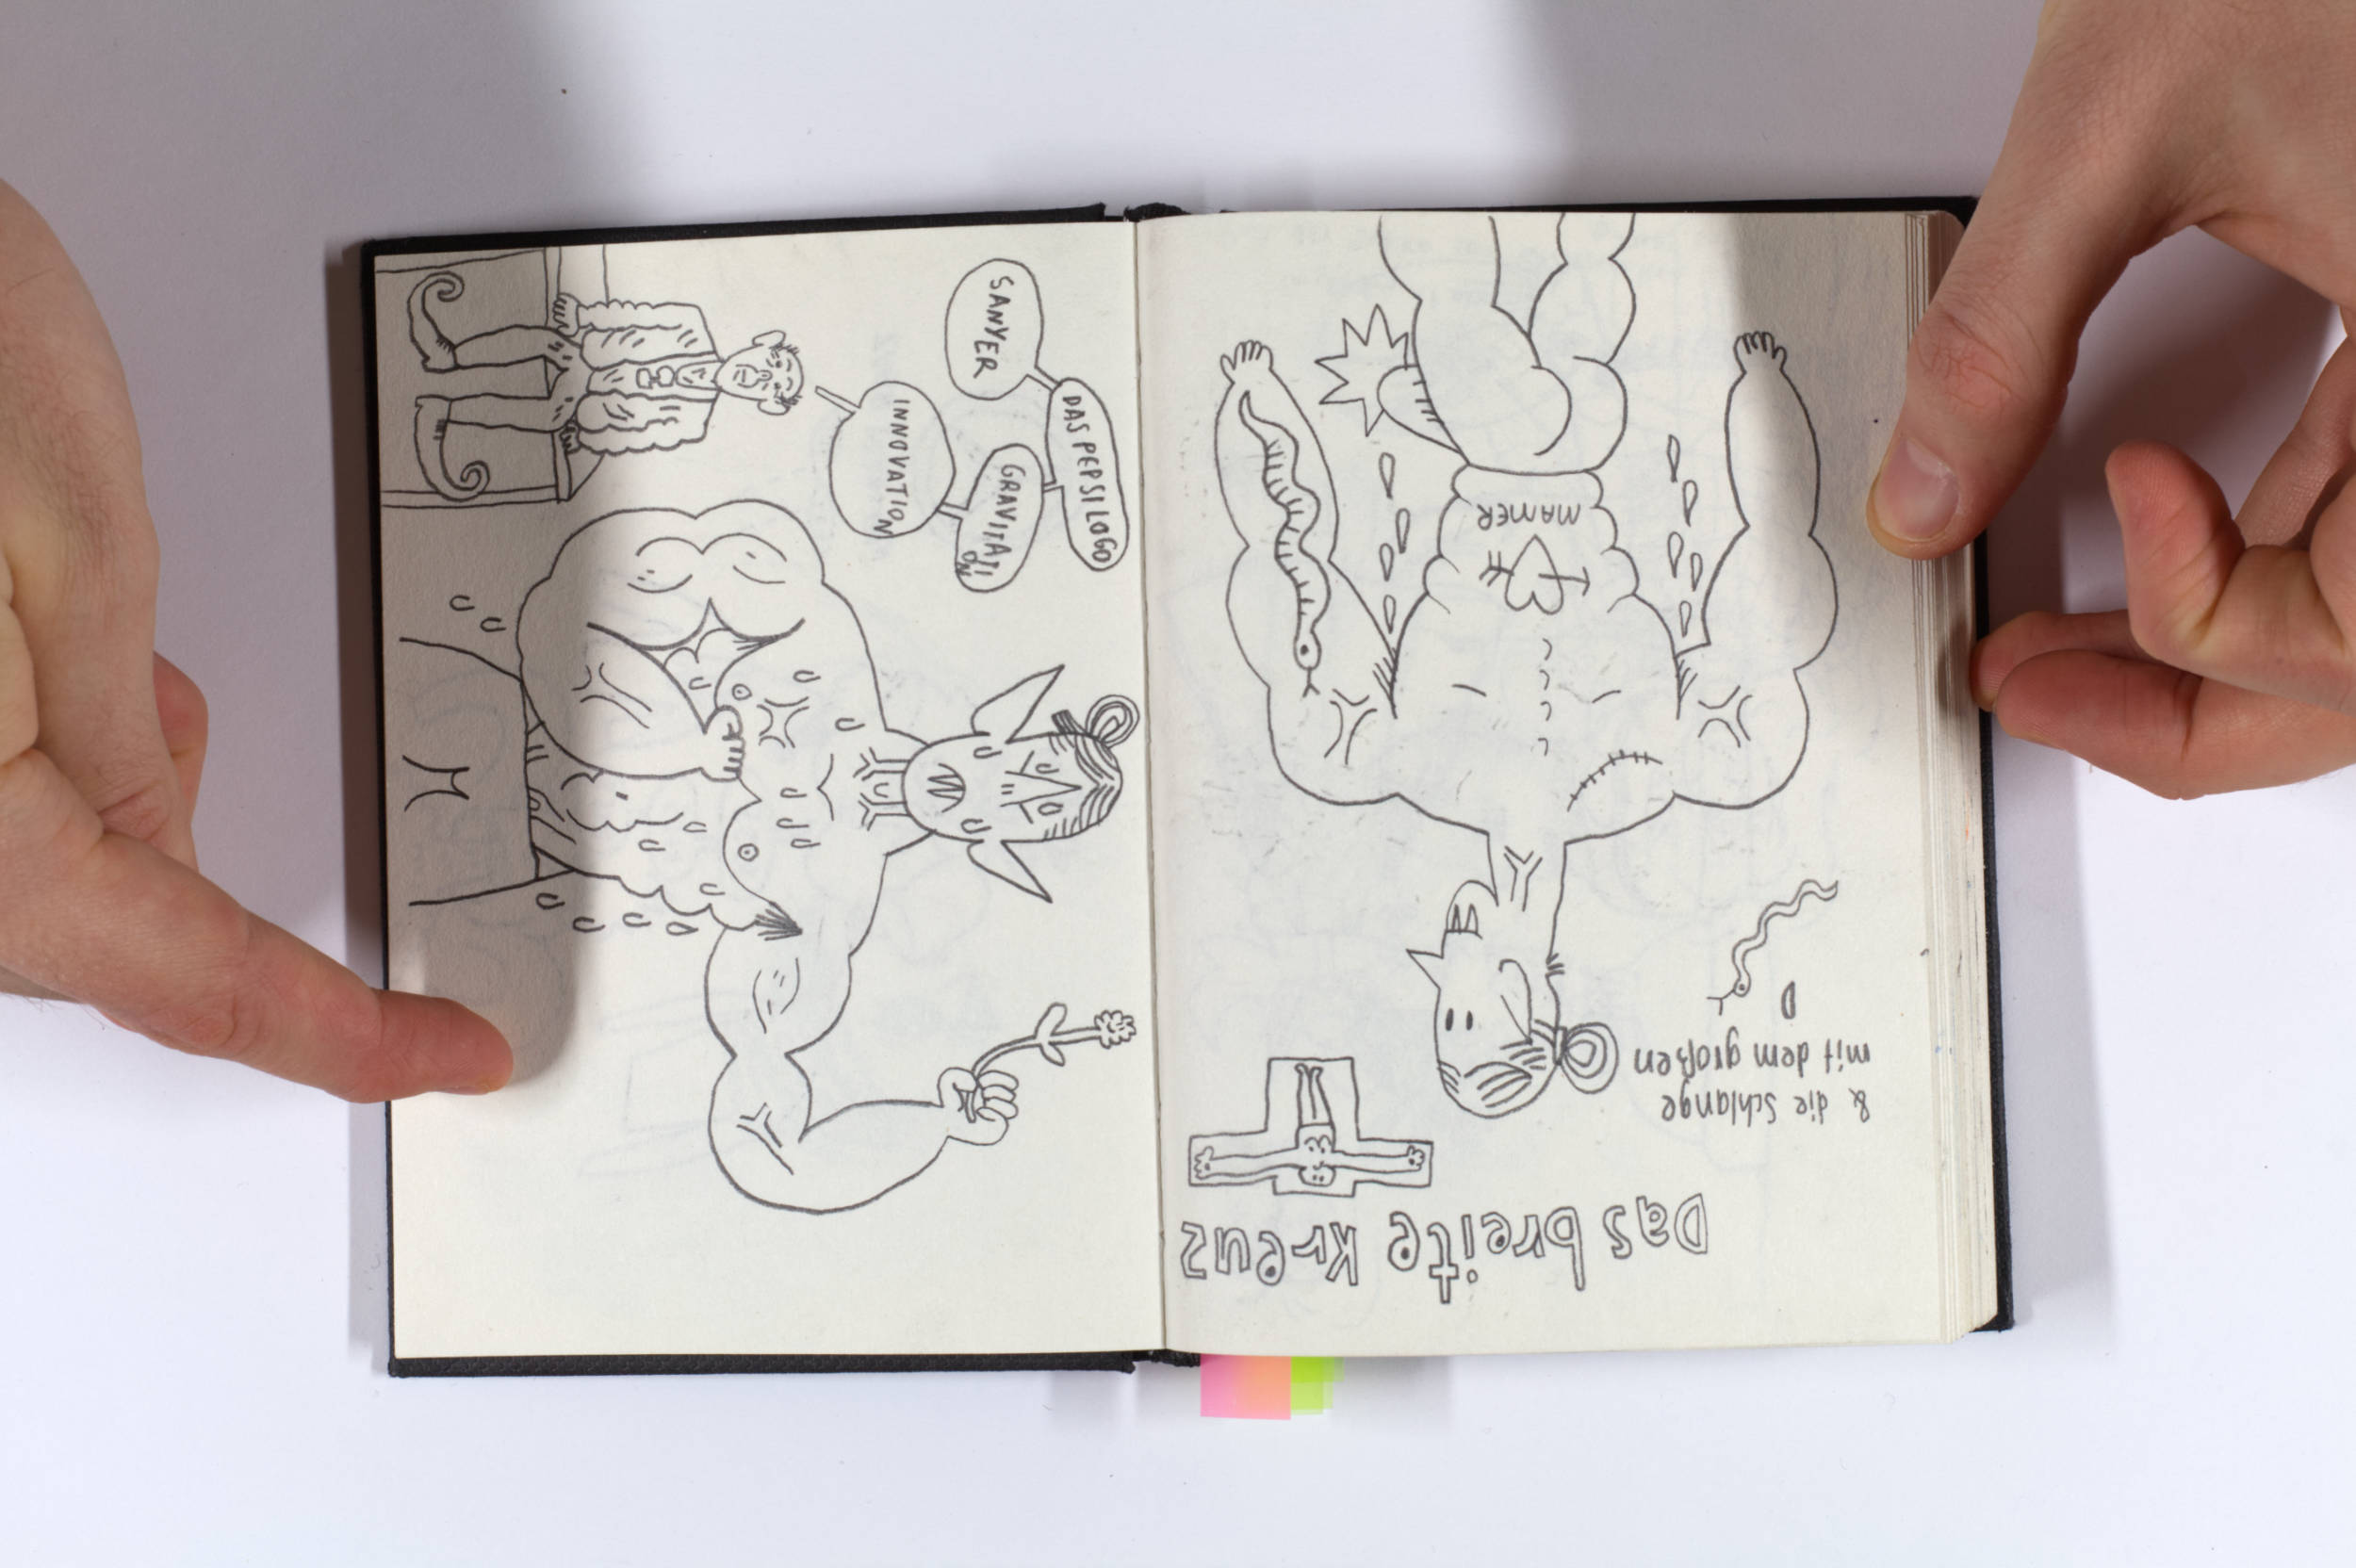 SANYER
DAS PEPSI LOGO
GRAVITATI
ON
INNOVATION
Das breite Kreuz
& die Schlange
mit dem großen
D
MAMER